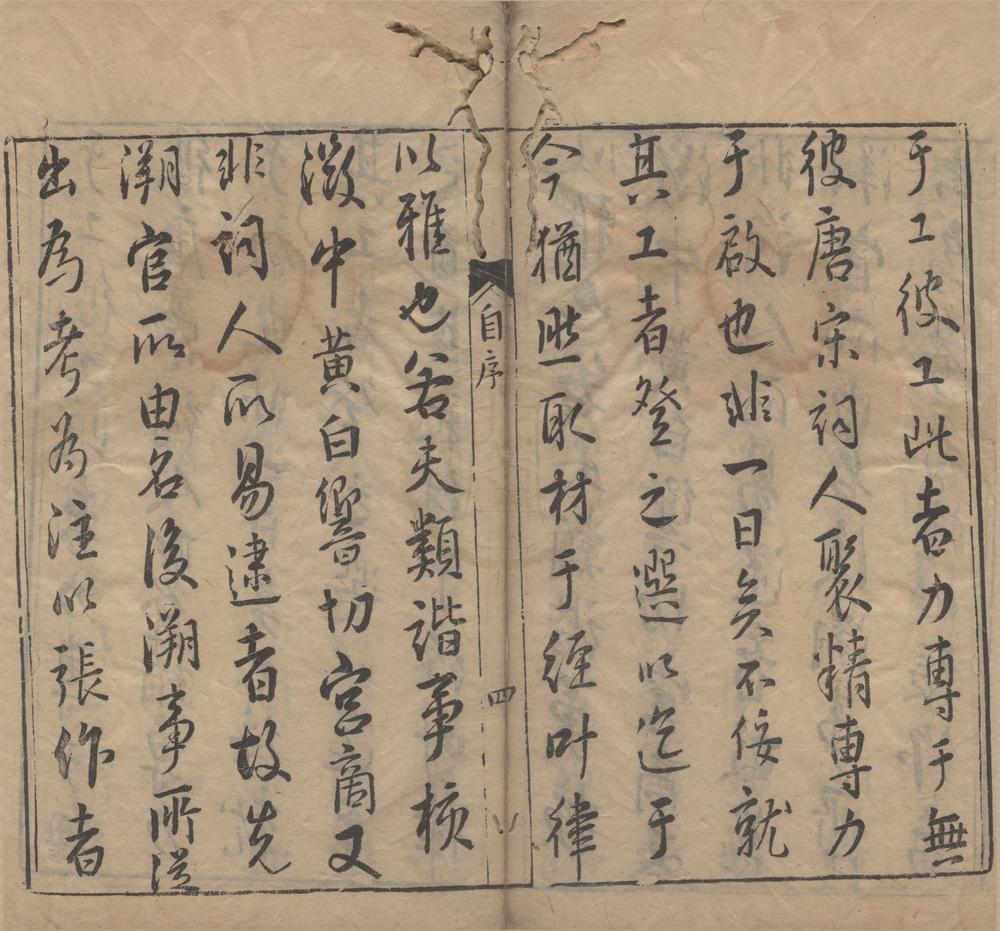 于工彼工此者力専于無
彼唐宋詞人聚精専力
于啟也非一日矣不佞就
其工者登之選以迄于
今猶然取材于經叶律
自序
四
以雅也若夫類諧事核
激中黃白響切宮商又
非詞人所易逮者故先
溯官所由名後溯事所從
出為考為注以張作者